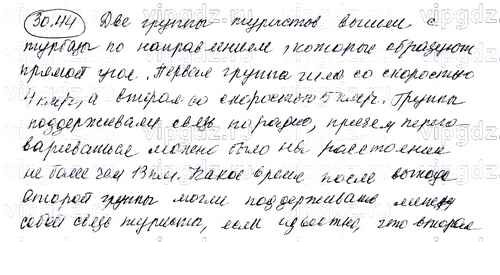 30.44 Две группы туристов вышли с
турбазы по направлениям, которые образуют
прямой угол. Первая группа шла со скоростью
4 км/ч, а вторая со скоростью 5 км/ч. Группы
поддерживают связь по радио, причем перего-
вариваться можно было на расстоянии
не более чем 13 км. Какое время после выхода
второй группы могли поддерживать между
собой связь туристы, если известно, что вторая